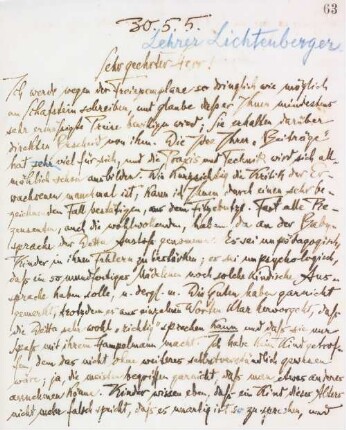 63
30.5.5.
Lehrer Lichtenberger
Sehr geehrter Herr!
Ich werde wegen der Freiexemplare so dringlich wie möglich
an Schafstein schreiben, und glaube daß er Ihnen mindestens
sehr ermäßigte Preise bewilligen wird; Sie erhalten darüber
direkten Bescheid von ihm. Die Idee Ihrer Beiträge
hat sehr viel für sich, und die Praxis und Technik wird sich all
mählich schon ausbilden. Wie kurzsichtig die Kritik der Er-
wachsenen manchmal ist, kann ich Ihnen durch einen sehr be-
zeichnenden Fall bestätigen, aus dem Fitzebutze. Fast alle Re-
zensenten, auch die wohlwollenden, haben da an der Baby-
sprache der Detta Anstoß genommen. Es sei unpädagogisch
Kinder in ihren Fehlern zu bestärken; es sei unpsychologisch,
daß ein so mundfertiges Mädchen noch solche kindische Aus-
sprache haben solle, u. dergl. m. Die Guten haben garnicht
gemerkt, trotzdem es aus einzelnen Worten klar hervorgeht, daß
die Detta sehr wohl richtig sprechen kann und daß sie nur
Spaß mit ihrem Hampelmann macht. Ich habe kein Kind getrof-
fen, dem das nicht ohne weiteres selbstverständlich gewesen
wäre; ja, die meisten begriffen garnicht daß man etwas anderes
annehmen könne. Kinder wissen eben, daß ein Kind dieses Alters
nicht mehr falsch spricht, daß es unartig ist so zu sprechen, und